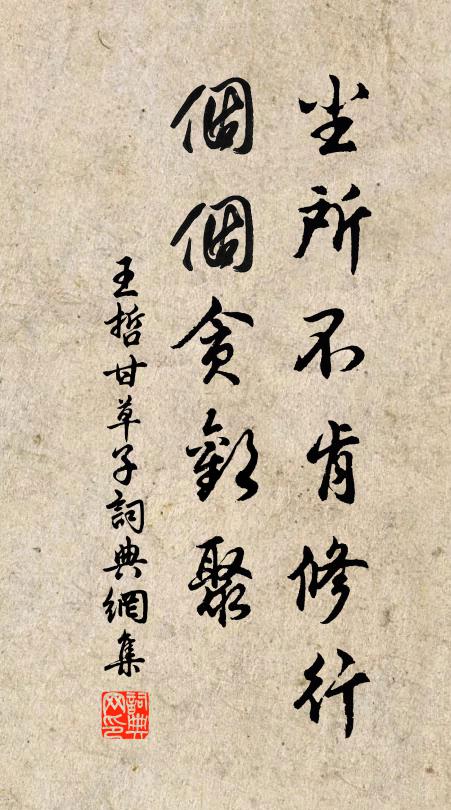 坐所不肯修行
個個貪歡聚
王哲甘草子詞典網集
詞典
网印